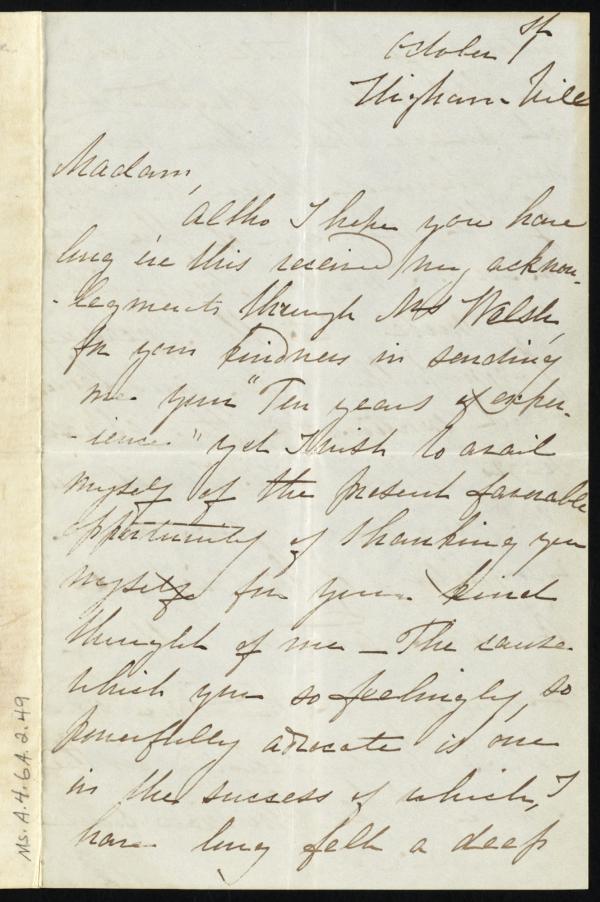 October 1st
Higham-Ville
Madam,
Altho I hope you have
long ere this received my acknow-
-legments through Mrs Walsh,
for your kindness in sending
me your "Ten years of exper-
-ience" yet I wish to avail
myself of the present favorable
opportunity of thanking you
myself for your kind
thought of me - The cause
which you so feelingly, so
powerfully advocate is one
in the success of which, I
have long felt a deep
Ms. A. 4. 6A. 2. 49